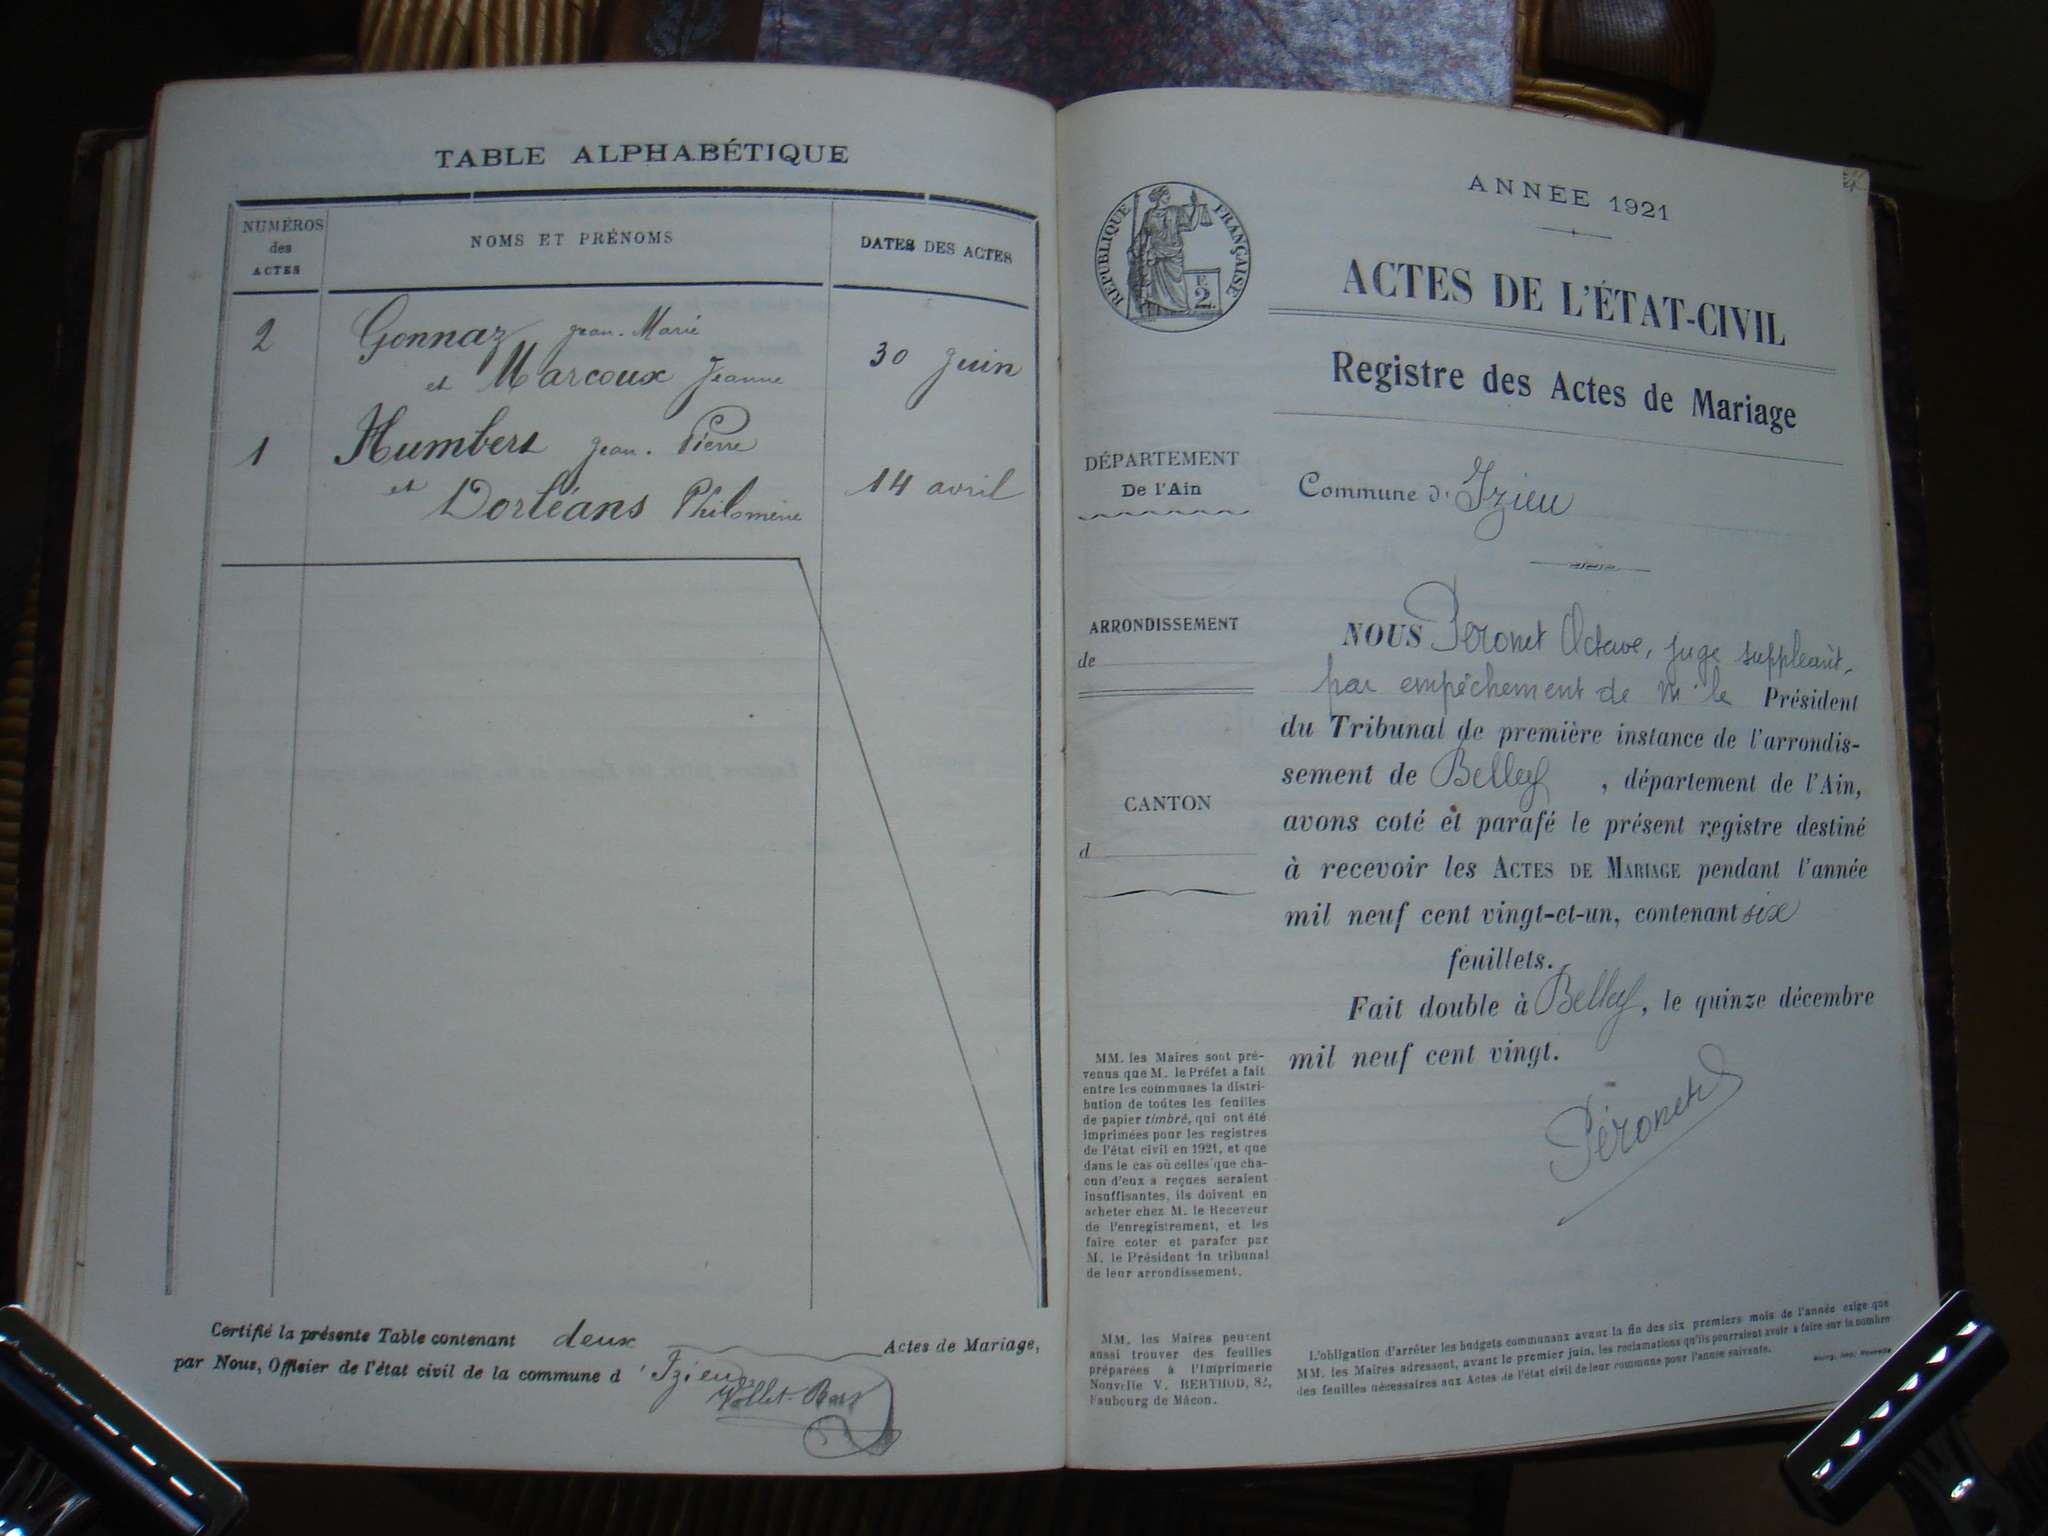 TABLE ALPHABÉTIQUE
NUMÉROS
des
ACTES
NOMS ET PRÉNOMS
DATES DES ACTES
2
Gonnaz Jean-Marie
et Marcoux Jeanne
30 juin
1
Humbert Jean-Pierre
et Dorléans Philomène
14 avril
Certifié la présente Table contenant deux Actes de Mariage,
par Nous, Officier de l'état civil de la commune d'Izieu
ANNÉE 1921
RÉPUBLIQUE FRANÇAISE
2
ACTES DE L'ÉTAT-CIVIL
Registre des Actes de Mariage
DÉPARTEMENT
De l'Ain
Commune d'Izieu
ARRONDISSEMENT
de
CANTON
d
NOUS Péronet Octave, juge suppléant,
par empêchement de Mr le Président
du Tribunal de première instance de l'arrondis-
sement de Belley, département de l'Ain,
avons coté et parafé le présent registre destiné
à recevoir les ACTES DE MARIAGE pendant l'année
mil neuf cent vingt-et-un, contenant six
feuillets.
Fait double à Belley, le quinze décembre
mil neuf cent vingt.
Péronet
MM. les Maires sont pré-
venus que M. le Préfet a fait
entre les communes la distri-
bution de toutes les feuilles
de papier timbré, qui ont été
imprimées pour les registres
de l'état civil en 1921, et que
dans le cas où celles que cha-
cun d'eux a reçues seraient
insuffisantes, ils doivent en
acheter chez M. le Receveur
de l'enregistrement, et les
faire coter et parafer par
M. le Président du tribunal
de leur arrondissement.
MM. les Maires peuvent
aussi trouver des feuilles
préparées à l'Imprimerie
Nouvelle V. BERTHOD, 82,
Faubourg de Mâcon.
L'obligation d'arrêter les budgets communaux avant la fin des six premiers mois de l'année exige que
MM. les Maires adressent, avant le premier juin, les réclamations qu'ils pourraient avoir à faire sur le nombre
des feuilles nécessaires aux Actes de l'état civil de leur commune pour l'année suivante.
Bourg, Imp. Nouvelle